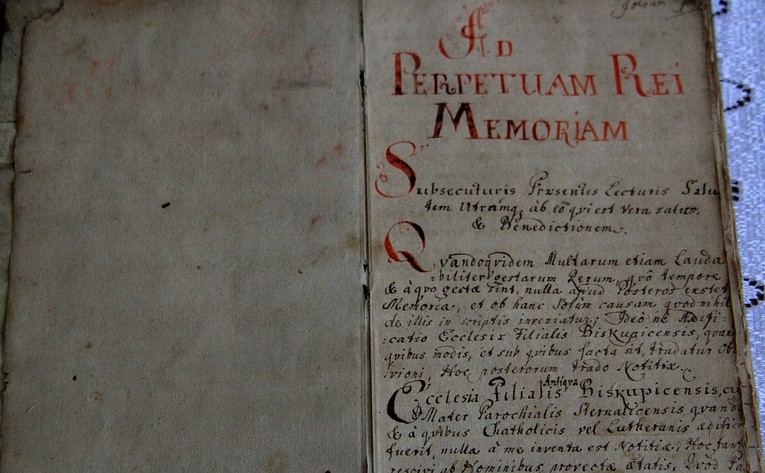 Ad
Perpetuam Rei
Memoriam
Subsecuturis Præsentes Lecturis Salu
tem Utramq, ab eô qvi est vera salus.
& Benedictionem.
Qvandoqvidem Multarum etiam Lauda
:biliter gestarum Rerum, qvô tempore
& à qvo gestæ sint, nulla apud Posteros extet
Memoria, et ob hanc solùm causam qvod nihil
de illis in scriptis inveniatur; Ideò ne Ædifi:
:catio Ecclesiæ Filialis Biskupicensis, qvan
qvibus modis, et sub qvibus facta sit, tradatur Obl
:vioni, Hoc posterorum trado Notitiæ.
Ecclesia Filialis Antiqva Biskupicensis, cu
Mater Parochialis Sternalicensis qvandô
& à qvibus Chatholicis vel Lutheranis ædifica
fuerit, nulla à me inventa est Notitia, Hoc tant
rescivi ab Hominibus provectæ ætatis, Qvòd